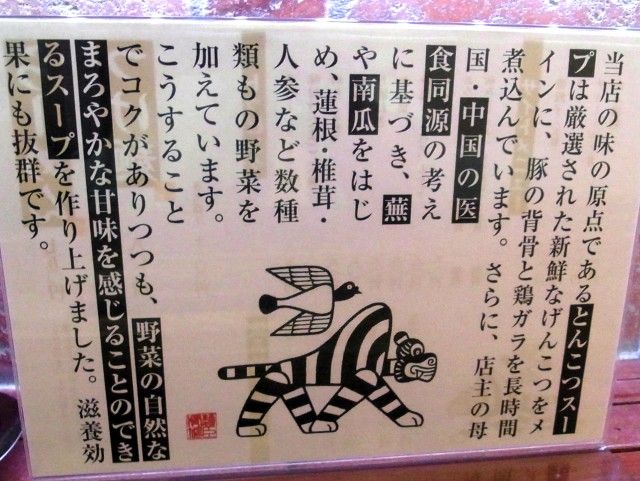 当店の味の原点であるとんこつスー
プは厳選された新鮮なげんこつをメ
インに、豚の背骨と鶏ガラを長時間
煮込んでいます。さらに、店主の母
国・中国の医
食同源の考え
に基づき、蕪
や南瓜をはじ
め、蓮根・椎茸・
人参など数種
類もの野菜を
加えています。
こうすること
でコクがありつつも、野菜の自然な
まろやかな甘味を感じることのでき
るスープを作り上げました。滋養効
果にも抜群です。